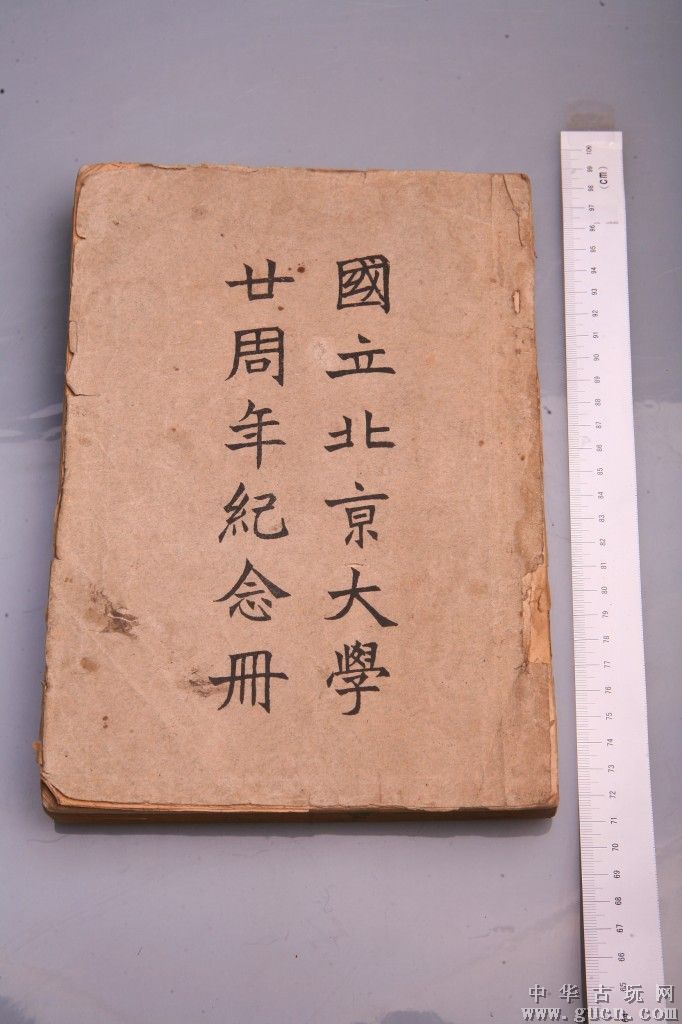 國立北京大學
廿周年紀念冊
(cm)
100
99
98
97
96
95
94
93
92
91
90
89
88
87
86
85
84
83
82
81
80
79
78
77
76
75
74
73
72
71
70
69
68
67
66
65
中华古玩网
www.gucn.com